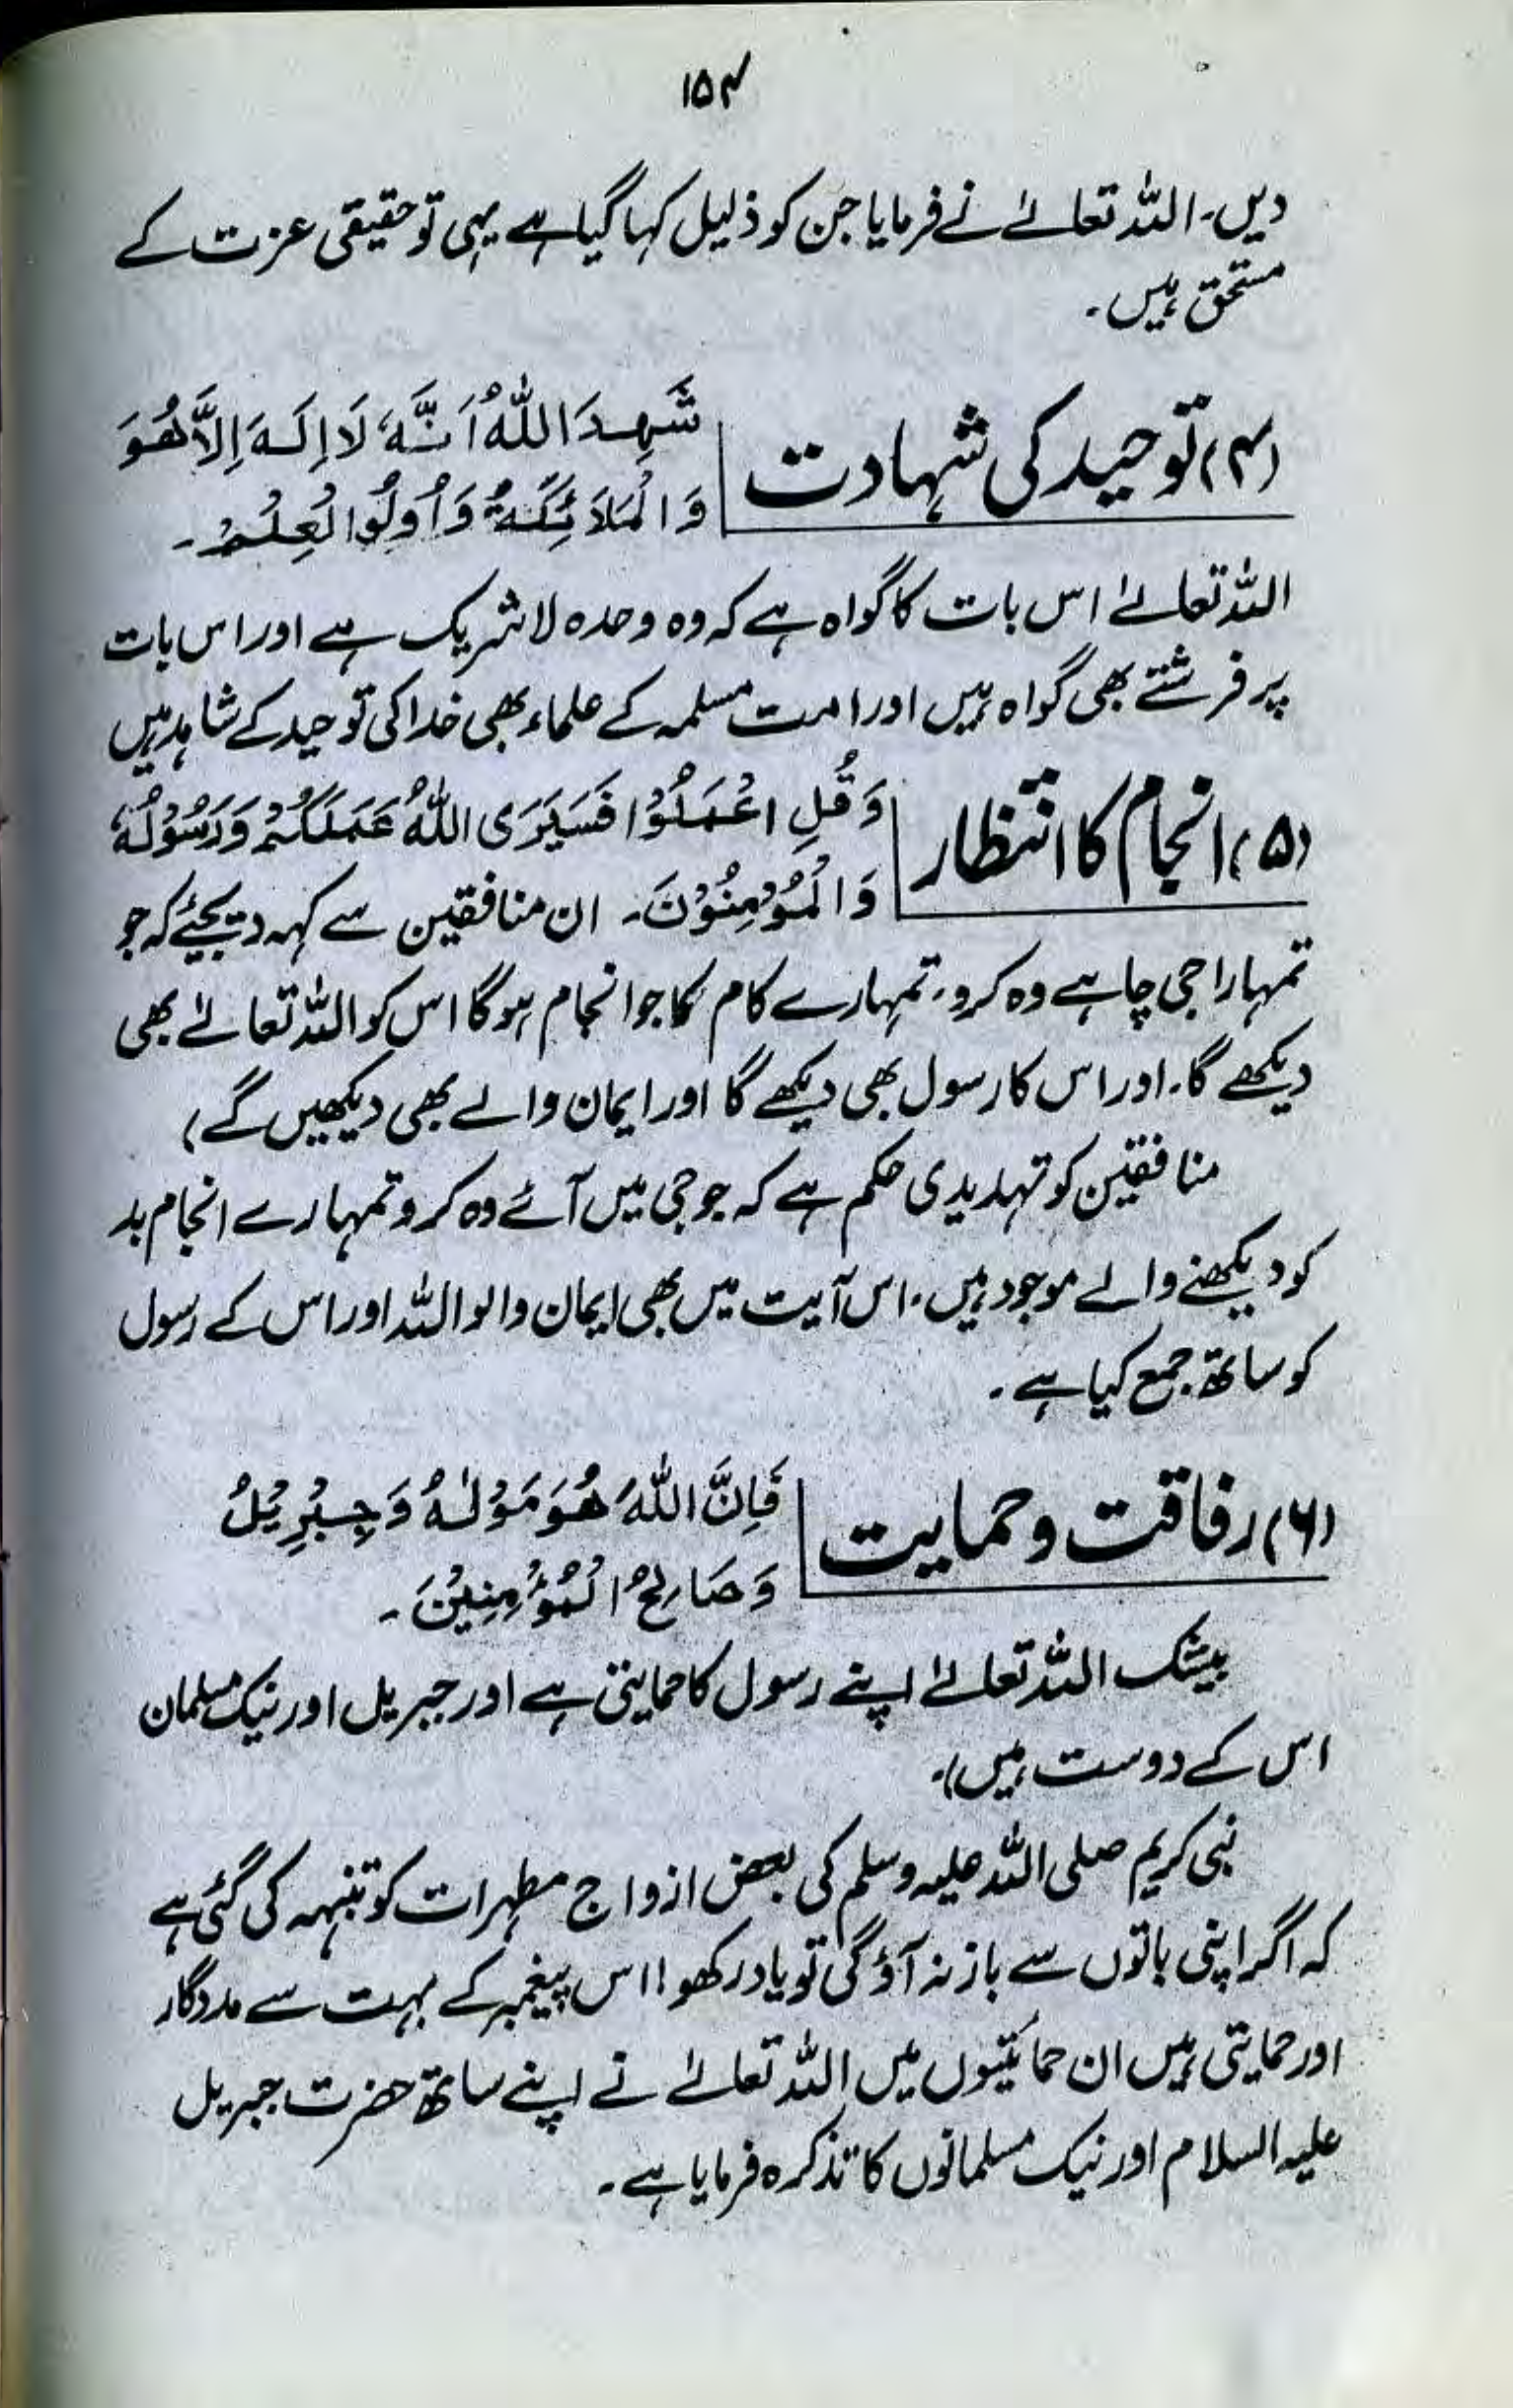 ۱۵۴
دیں۔ اللہ تعالےٰ نے فرمایا جن کو ذلیل کہا گیا ہے یہی تو حقیقی عزت کے
مستحق ہیں۔
(۴) توحید کی شہادت
شَهِدَ اللهُ اَنَّهٗ لَا اِلٰهَ اِلَّا هُوَ
وَالْمَلَائِكَةُ وَاُولُوا لْعِلْمِ۔
اللہ تعالےٰ اس بات کا گواہ ہے کہ وہ وحدہ لاشریک ہے اور اس بات
پر فرشتے بھی گواہ ہیں اور امت مسلمہ کے علماء بھی خدا کی توحید کے شاہد ہیں
(۵) انجام کا انتظار
وَقُلِ اعْمَلُوْا فَسَيَرَى اللهُ عَمَلَكُمْ وَرَسُوْلُهٗ
وَالْمُؤْمِنُوْنَ۔ ان منافقین سے کہہ دیجئے کہ جو
تمہارا جی چاہے وہ کرو، تمہارے کام کا جو انجام ہوگا اس کو اللہ تعالےٰ بھی
دیکھے گا۔ اور اس کا رسول بھی دیکھے گا اور ایمان والے بھی دیکھیں گے)
منافقین کو تہدیدی حکم ہے کہ جو جی میں آئے وہ کرو تمہارے انجام بد
کو دیکھنے والے موجود ہیں۔ اس آیت میں بھی ایمان والو اللہ اور اس کے رسول
کو ساتھ جمع کیا ہے۔
(۶) رفاقت و حمایت
فَاِنَّ اللهَ هُوَ مَوْلٰهُ وَجِبْرِيْلُ
وَصَالِحُ الْمُؤْمِنِيْنَ۔
بیشک اللہ تعالےٰ اپنے رسول کا حمایتی ہے اور جبریل اور نیک مسلمان
اس کے دوست ہیں)۔
نبی کریم صلی اللہ علیہ وسلم کی بعض ازواج مطہرات کو تنبہہ کی گئی ہے
کہ اگر اپنی باتوں سے باز نہ آؤ گی تو یاد رکھو! اس پیغمبر کے بہت سے مددگار
اور حمایتی ہیں ان حمائتیوں میں اللہ تعالےٰ نے اپنے ساتھ حضرت جبریل
علیہ السلام اور نیک مسلمانوں کا تذکرہ فرمایا ہے۔